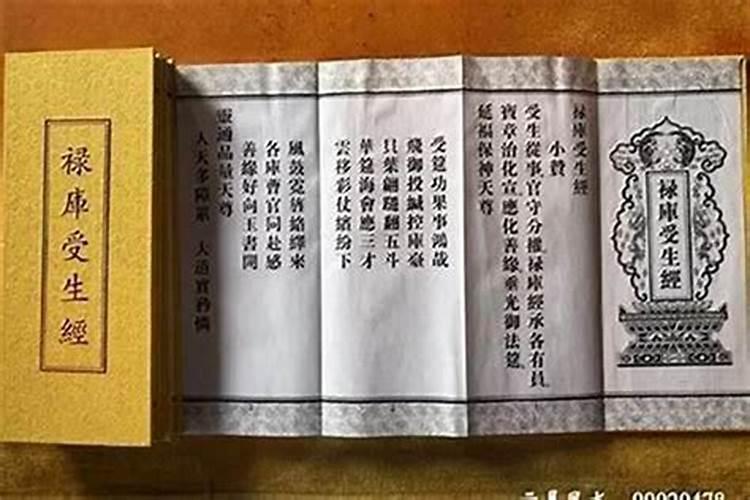 祿庫受生經
祿庫受生經
祿庫受生經
小贊
受生從事官守分權祿庫經承各有員
寶章治化宣應化善緣垂光御法筵
延福保神天尊
受筵功果事鴻哉
飛御投緘控庫臺
貝葉翩翩五斗
華筵海會應三才
雲移彩仗繽紛下
風鼓霓旌絡繹來
各庫曹官同赴感
善緣好向玉書開
靈通品量天尊
人天多障累 大道實矜憐